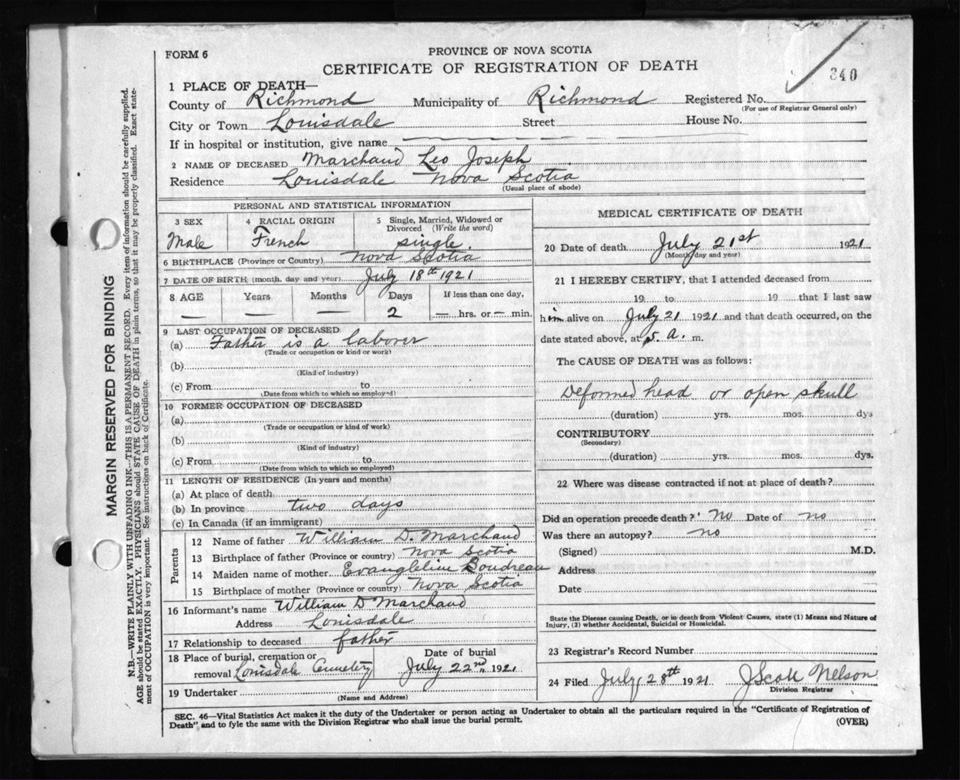 FORM 6
PROVINCE OF NOVA SCOTIA
CERTIFICATE OF REGISTRATION OF DEATH
340
1 PLACE OF DEATH—
County of Richmond Municipality of Richmond Registered No.
(For use of Registrar General only)
City or Town Louisdale Street House No.
If in hospital or institution, give name
2 NAME OF DECEASED Marchand Leo Joseph
Residence Louisdale Nova Scotia
(Usual place of abode)
PERSONAL AND STATISTICAL INFORMATION
3 SEX 4 RACIAL ORIGIN 5 Single, Married, Widowed or Divorced (Write the word)
Male French single.
6 BIRTHPLACE (Province or Country) Nova Scotia
7 DATE OF BIRTH (month, day and year) July 18th 1921
8 AGE Years Months Days If less than one day,
— — 2 — hrs. or — min.
9 LAST OCCUPATION OF DECEASED
(a) Father is a laborer
(Trade or occupation or kind or work)
(b)
(Kind of industry)
(c) From to
(Date from which to which so employed)
10 FORMER OCCUPATION OF DECEASED
(a)
(Trade or occupation or kind of work)
(b)
(Kind of industry)
(c) From to
(Date from which to which so employed)
11 LENGTH OF RESIDENCE (In years and months)
(a) At place of death
(b) In province two days
(c) In Canada (if an immigrant)
Parents
12 Name of father William D. Marchand
13 Birthplace of father (Province or country) Nova Scotia
14 Maiden name of mother Evangleline Boudreau
15 Birthplace of mother (Province or country) Nova Scotia
16 Informant's name William D Marchand
Address Louisdale
17 Relationship to deceased father
18 Place of burial, cremation or Date of burial
removal Louisdale Cemetery July 22nd 1921
19 Undertaker
(Name and Address)
MEDICAL CERTIFICATE OF DEATH
20 Date of death July 21st 1921
(Month, day and year)
21 I HEREBY CERTIFY, that I attended deceased from
19 to 19 that I last saw
him alive on July 21 1921 and that death occurred, on the
date stated above, at 5. a. m.
The CAUSE OF DEATH was as follows:
Deformed head or open skull
(duration) yrs. mos. dys
CONTRIBUTORY
(Secondary)
(duration) yrs. mos. dys.
22 Where was disease contracted if not at place of death?
Did an operation precede death? No Date of no
Was there an autopsy? no
(Signed) M.D.
Address
Date
State the Disease causing Death, or in death from Violent Causes, state (1) Means and Nature of
Injury, (2) whether Accidental, Suicidal or Homicidal.
23 Registrar's Record Number
24 Filed July 28th 1921 J Scott Nelson
Division Registrar
SEC. 46—Vital Statistics Act makes it the duty of the Undertaker or person acting as Undertaker to obtain all the particulars required in the "Certificate of Registration of
Death" and to fyle the same with the Division Registrar who shall issue the burial permit.
(OVER)
MARGIN RESERVED FOR BINDING
N.B.—WRITE PLAINLY WITH UNFADING INK—THIS IS A PERMANENT RECORD. Every item of information should be carefully supplied.
AGE should be stated EXACTLY. PHYSICIANS should STATE CAUSE OF DEATH in plain terms, so that it may be properly classified. Exact state-
ment of OCCUPATION is very important. See instructions on back of Certificate.